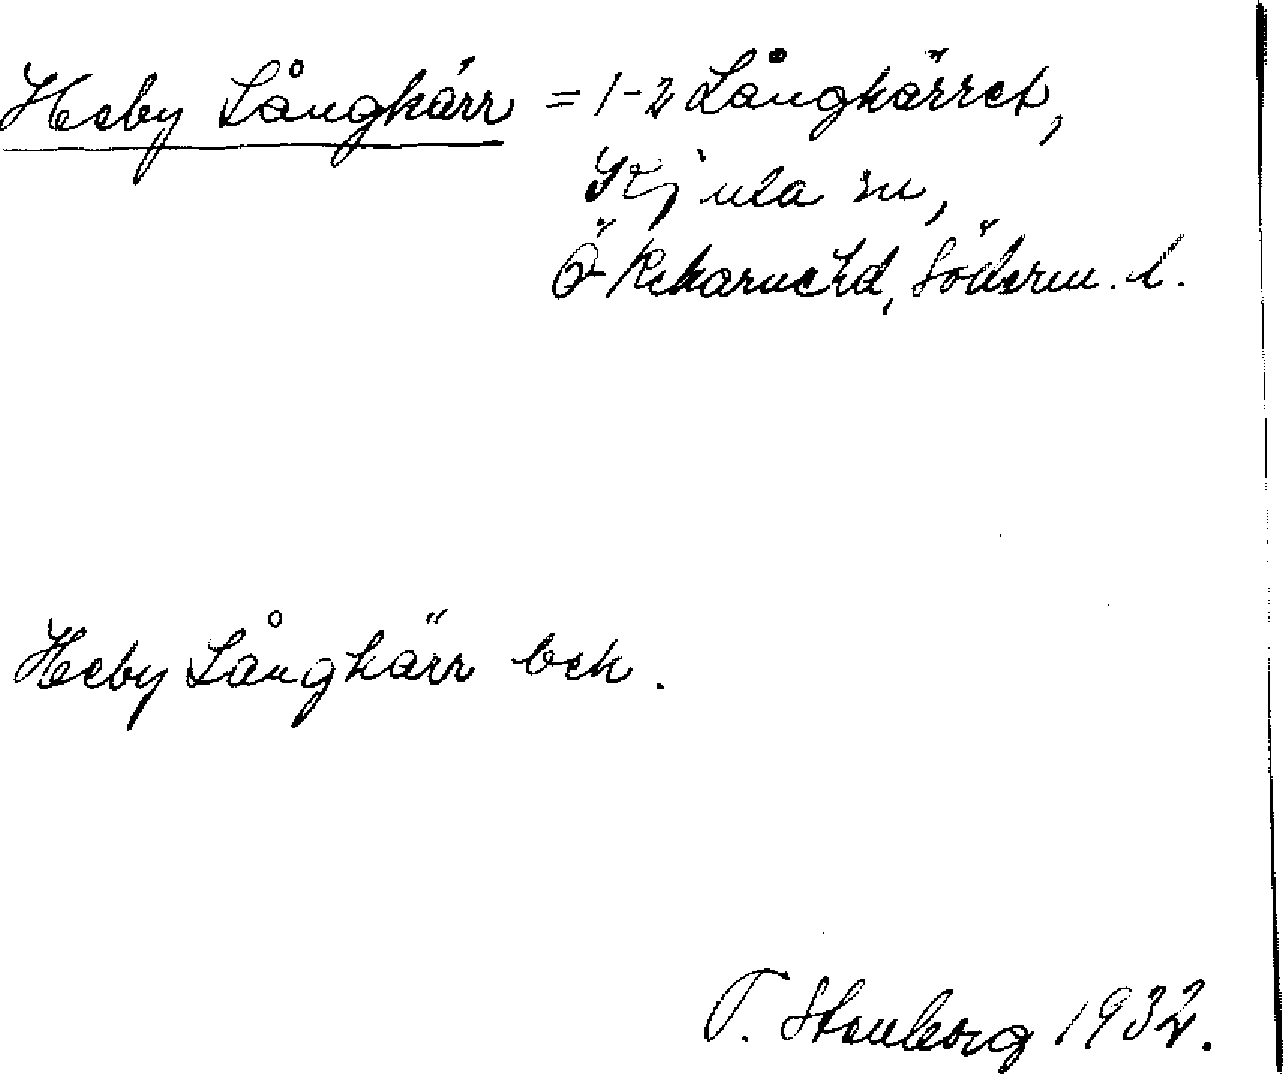 Heby Långkärr = 1-2 Långkärret,
Kjula sn,
Ö Rekarnehd, Söderm. l.
Heby Långkärr bek.
T. Stenborg 1932.